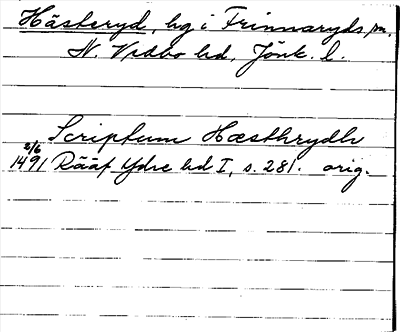 Hästeryd, hg i Frinnaryds sn,
N. Vedbo hd, Jönk. l.
Scriptum Hæsthrydh
2/6
1491 Rääf Ydre hd I, s. 281. orig.